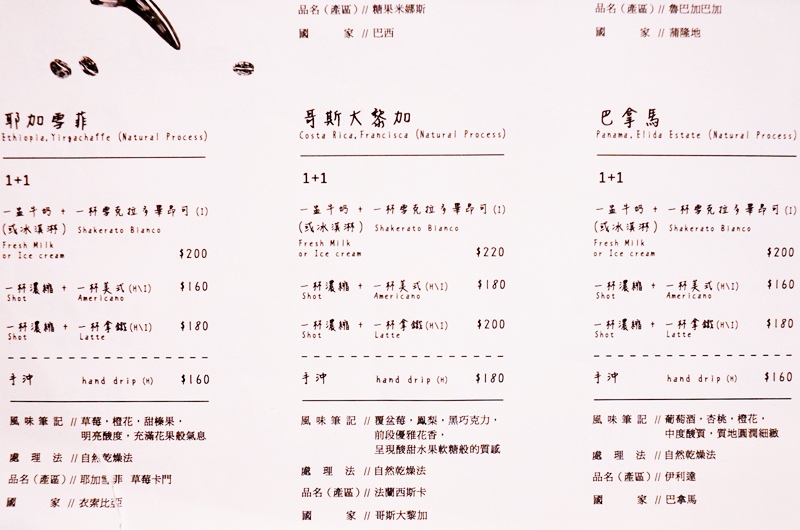 品名(產區)// 糖果米娜斯
國 家 // 巴西
品名(產區)// 魯巴加巴加
國 家 // 蒲隆地
耶加雪菲
Ethiopia,Yirgachaffe (Natural Process)
1+1
一盅牛奶 + 一杯雪克拉多畢昂可(I)
(或冰淇淋) Shakerato Bianco
Fresh Milk
or Ice cream $200
一杯濃縮 + 一杯美式(H\I) $160
Shot Americano
一杯濃縮 + 一杯拿鐵(H\I) $180
Shot Latte
手沖 hand drip (H) $160
風味筆記 // 草莓,橙花,甜榛果,
明亮酸度,充滿花果般氣息
處理法 // 自然乾燥法
品名(產區)// 耶加雪菲 草莓卡門
國 家 // 衣索比亞
哥斯大黎加
Costa Rica,Francisca (Natural Process)
1+1
一盅牛奶 + 一杯雪克拉多畢昂可(I)
(或冰淇淋) Shakerato Bianco
Fresh Milk
or Ice cream $220
一杯濃縮 + 一杯美式(H\I) $180
Shot Americano
一杯濃縮 + 一杯拿鐵(H\I) $200
Shot Latte
手沖 hand drip (H) $180
風味筆記 // 覆盆莓,鳳梨,黑巧克力,
前段優雅花香,
呈現酸甜水果軟糖般的質感
處理法 // 自然乾燥法
品名(產區)// 法蘭西斯卡
國 家 // 哥斯大黎加
巴拿馬
Panama,Elida Estate (Natural Process)
1+1
一盅牛奶 + 一杯雪克拉多畢昂可(I)
(或冰淇淋) Shakerato Bianco
Fresh Milk
or Ice cream $200
一杯濃縮 + 一杯美式(H\I) $160
Shot Americano
一杯濃縮 + 一杯拿鐵(H\I) $180
Shot Latte
手沖 hand drip (H) $160
風味筆記 // 葡萄酒,杏桃,橙花,
中度酸質,質地圓潤細緻
處理法 // 自然乾燥法
品名(產區)// 伊利達
國 家 // 巴拿馬